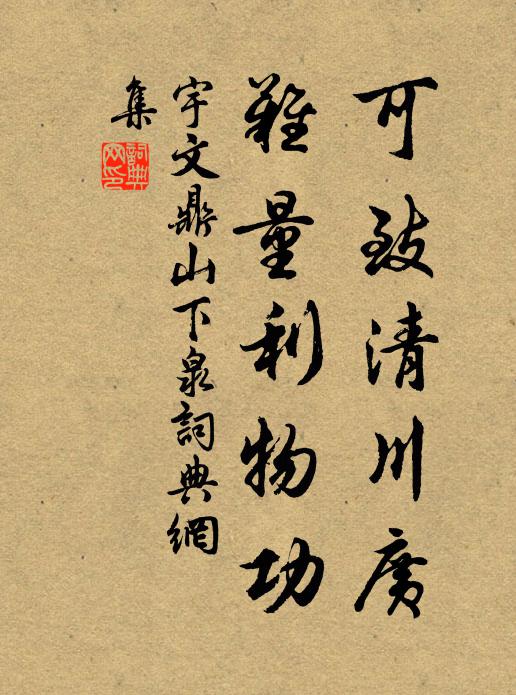 可致清川廣
難量利物功
宇文鼎山下泉詞典網
集
詞典
网印